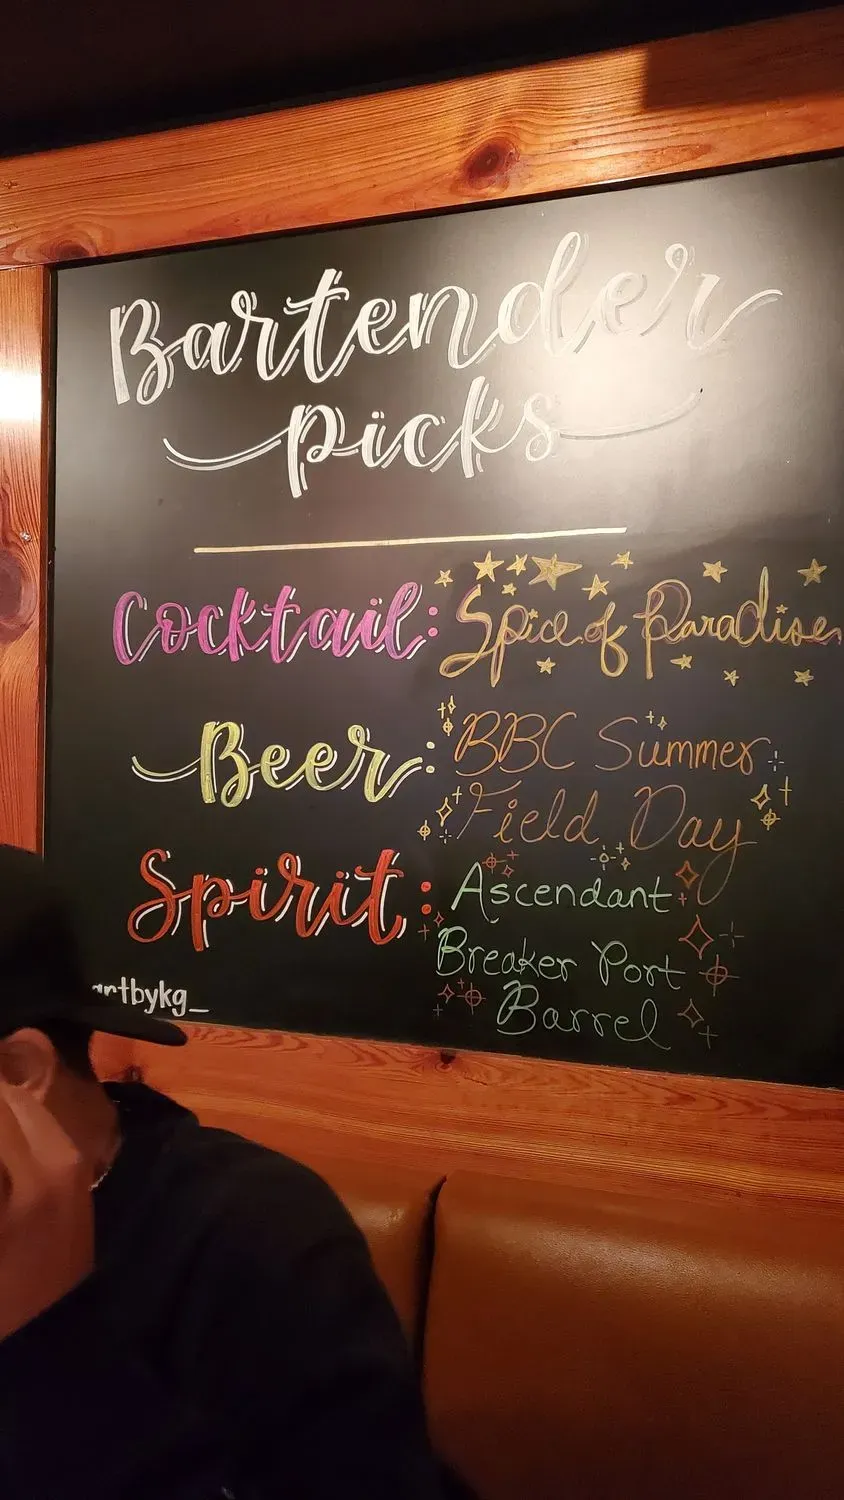 Bartender
picks
Cocktail: Spice of Paradise
Beer: BBC Summer
Field Day
Spirit: Ascendant
Breaker Port
Barrel
artbykg_